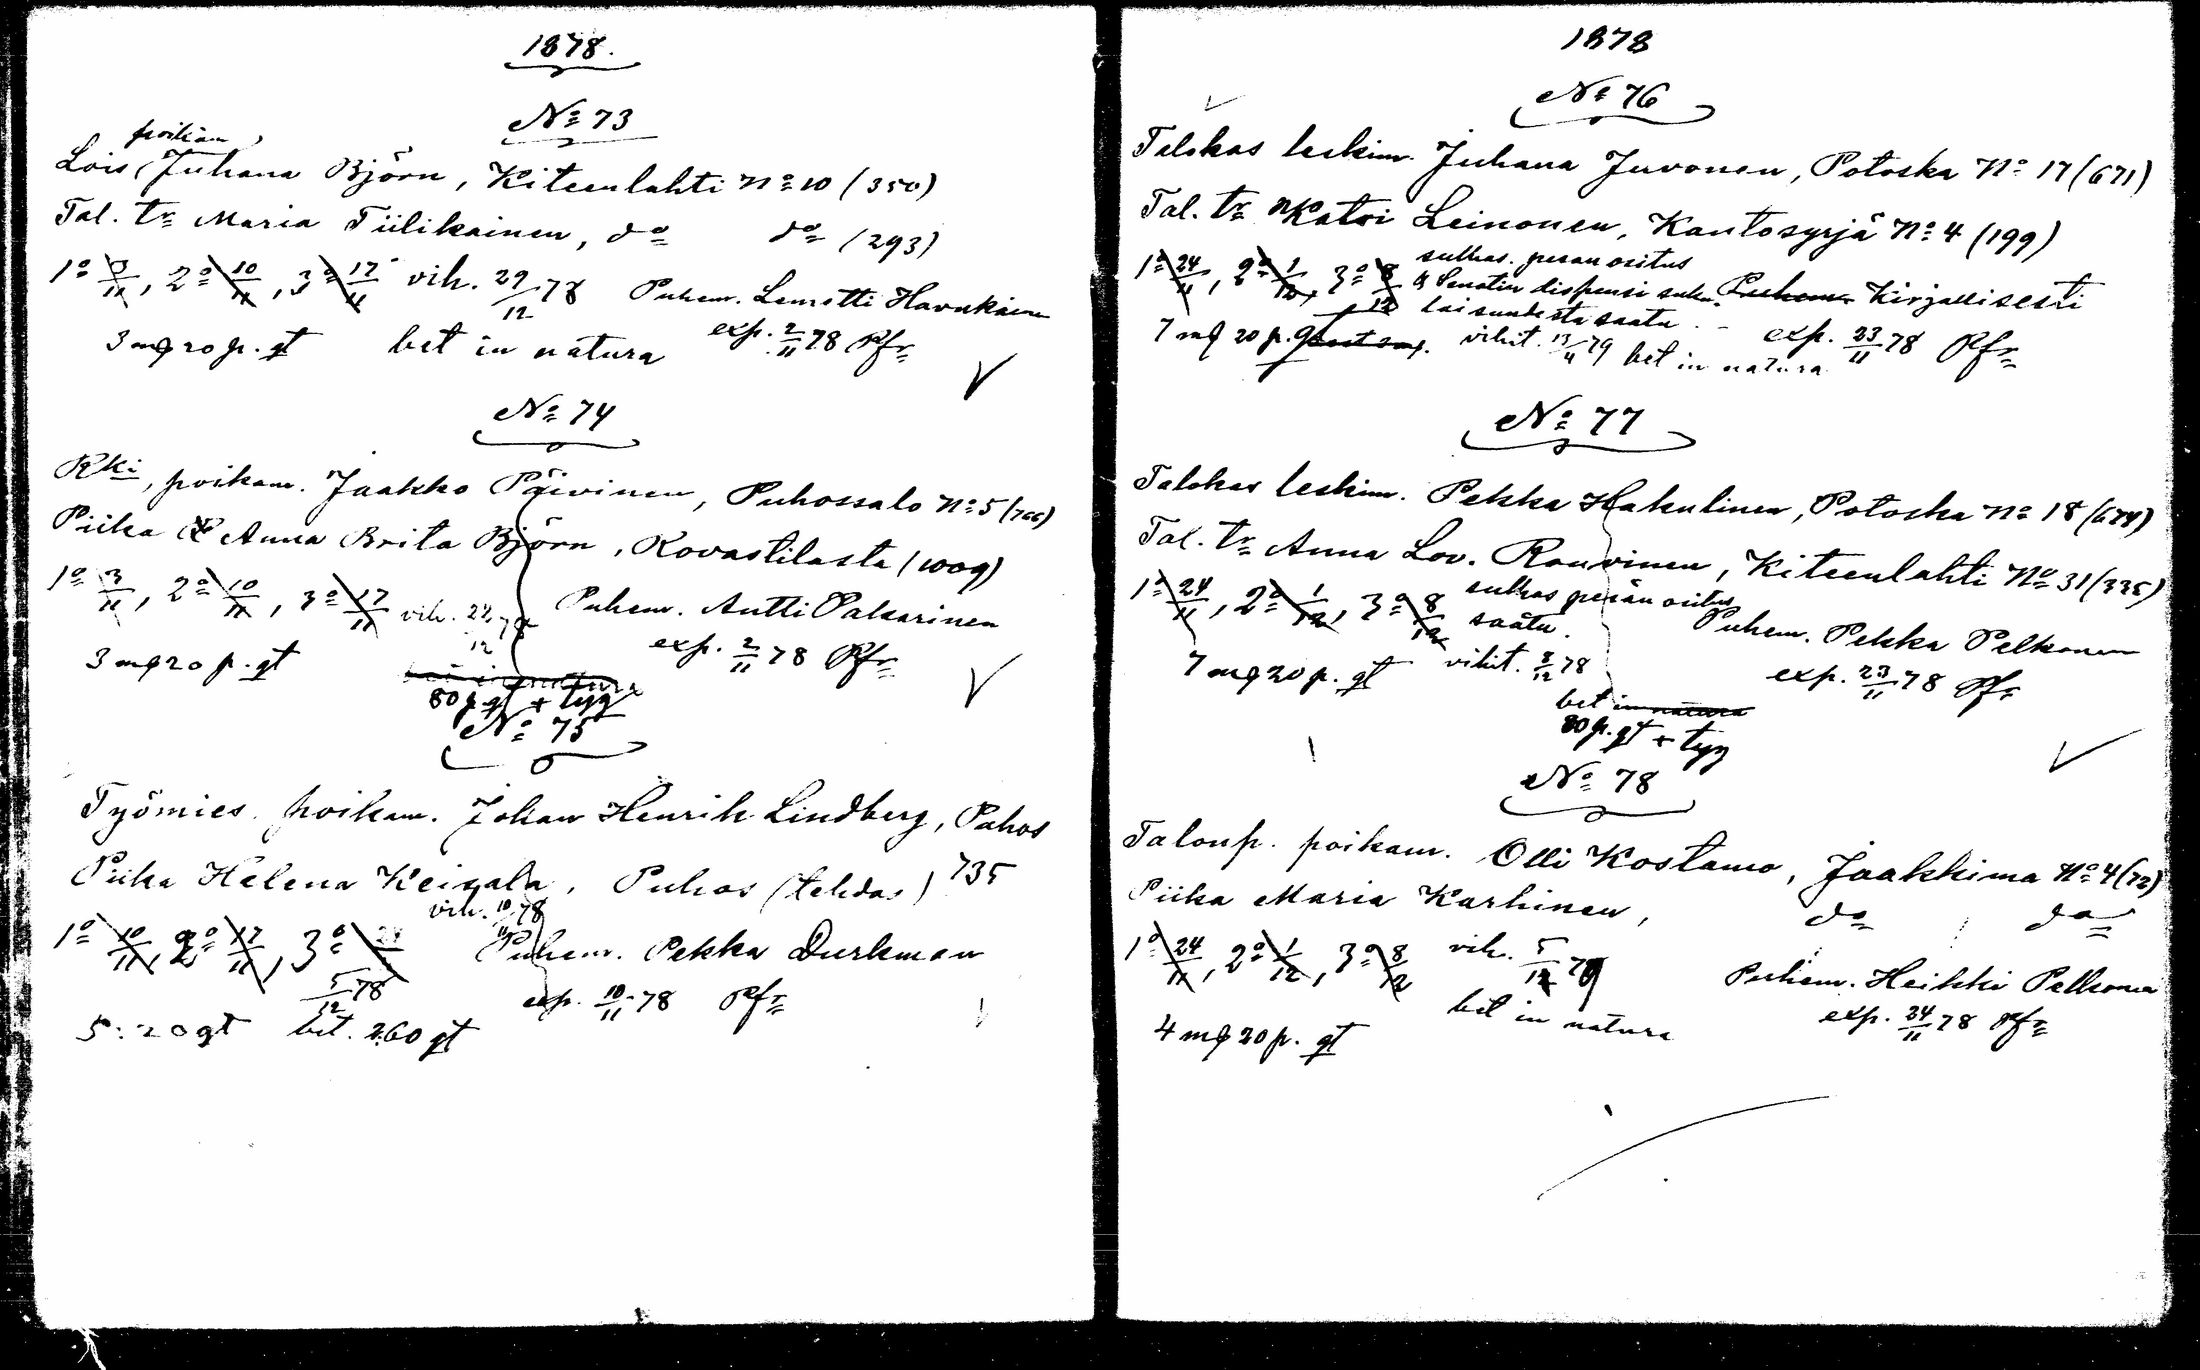 1878.
No 73
poikam
Lois Juhana Björn, Kiteenlahti No 10 (350)
Tal. tr Maria Tiilikainen, do do (293)
1o 3/11, 2o 10/11, 3o 17/11 vih. 29/12 78 Puhem. Lemetti Havukainen
3 mq 20 p. qt bet in natura exp. 2/11 78 Pfr
No 74
Rki, poikam. Jaakko Päivinen, Puhossalo No 5 (766)
Piika Anna Brita Björn, Rovastilasta (1009)
1o 3/11, 2o 10/11, 3o 17/11 vih. Puhem. Antti Pakarinen
3 mq 20 p. qt exp. 2/11 78 Pfr
bet in natura
80 p qt + tyg
No 75
Työmies poikam. Johan Henrik Lindberg, Puhos
Piika Helena Keizala, Puhos (tehdas) 735
vih. 10/11 78
1o 10/11, 2o 17/11, 3o Puhem. Pekka Durkman
5/12 78 exp. 10/11 78 Pfr
5:20 qt bet. 2.60 qt
1878
No 76
Talokas leskim. Juhana Juvonen, Potoska No 17 (671)
Tal. tr Katri Leinonen, Kantosyrjä No 4 (199)
1o 24/11, 2o 1/12, 3o 8/12 sulhas. perän ositus
& Senatin dispensi suku- Puhem. Kirjallisesti
laisuudesta saatu. exp. 23/11 78 Pfr
7 mq 20 p. vihit. 13/4 79 bet in natura
No 77
Talokas leskim. Pekka Hakulinen, Potoska No 18 (674)
Tal. tr Anna Lov. Rouvinen, Kiteenlahti No 31 (335)
1o 24/11, 2o 1/12, 3o 8/12 sulhas perän ositus
saatu. Puhem. Pekka Pelkonen
7 mq 20 p. qt vihit. 8/12 78 exp. 23/11 78 Pfr
bet in natura
80 p. qt + tyg
No 78
Talonp. poikam. Olli Kostamo, Jaakkima No 4 (72)
Piika Maria Karhinen, do do
1o 24/11, 2o 1/12, 3o 8/12 vih. 5/12 78 Puhem. Heikki Pelkonen
4 mq 20 p. qt bet in natura exp. 24/11 78 Pfr